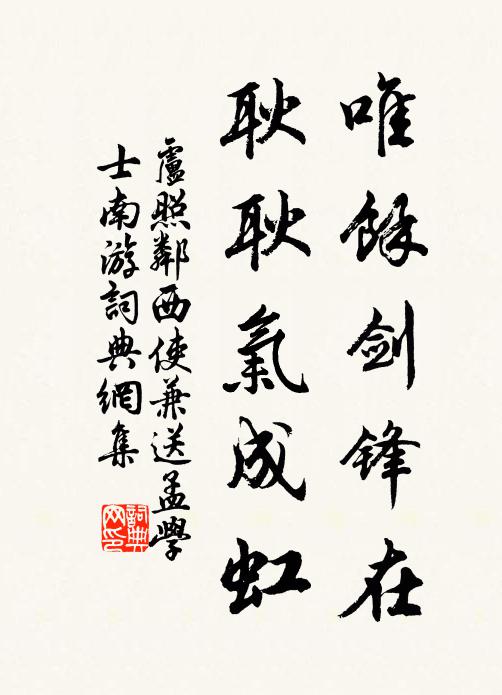 唯餘剑锋在
耿耿氣成虹
盧照鄰西使兼送孟學
士南游詞典網集
詞典
网印